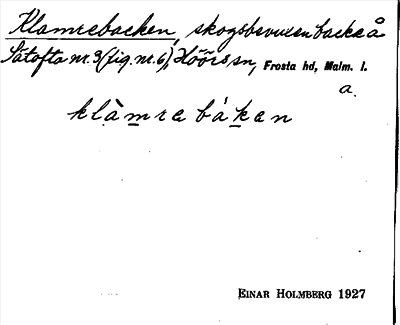 Klamrebacken, skogsbevuxen backe å
Sätofta nr. 3 (fig. nr. 6), Höörs sn, Frosta hd, Malm. l.
a.
klàmrebákan
EINAR HOLMBERG 1927